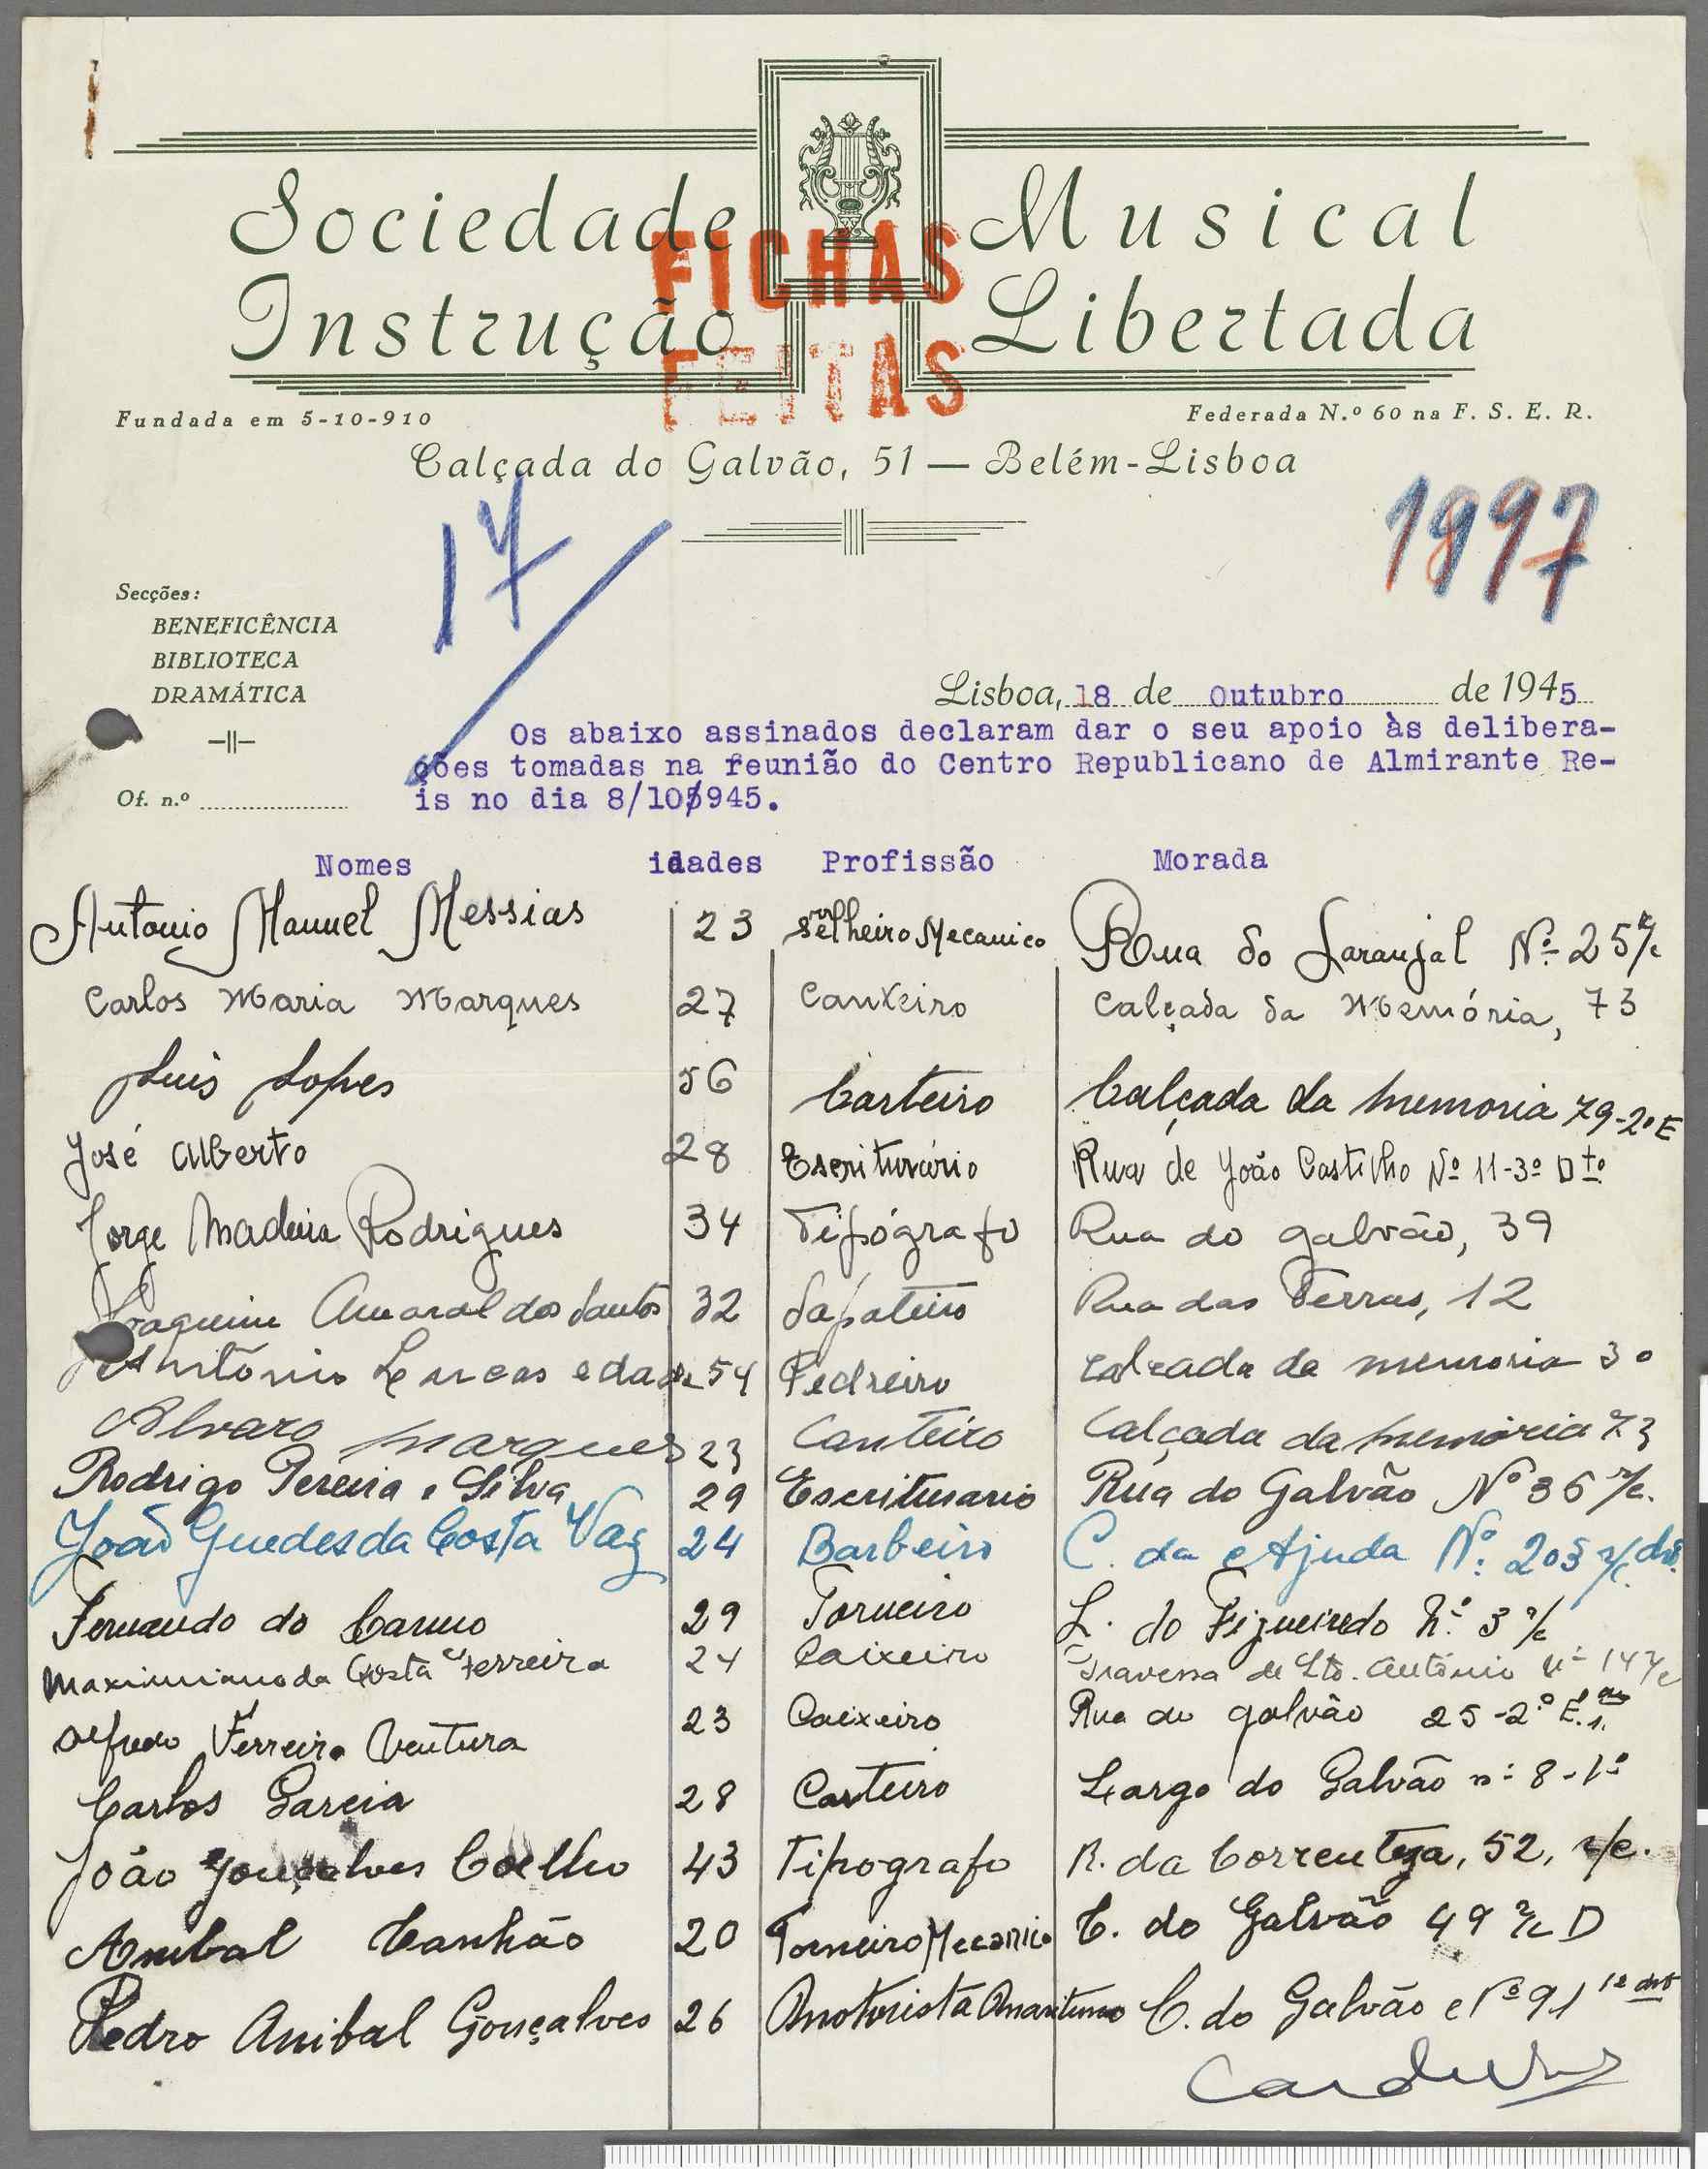 Sociedade Musical
Instrução Libertada
FICHAS
FEITAS
Fundada em 5-10-910
Federada N.º 60 na F. S. E. R.
Calçada do Galvão, 51 — Belém-Lisboa
17
1997
Secções:
BENEFICÊNCIA
BIBLIOTECA
DRAMÁTICA
Of. n.º
Lisboa, 18 de Outubro de 1945
Os abaixo assinados declaram dar o seu apoio às delibera-
ções tomadas na reunião do Centro Republicano de Almirante Re-
is no dia 8/10/945.
Nomes idades Profissão Morada
Antonio Manuel Messias 23 Mecanico Rua do Laranjal Nº 25 r/c
Carlos Maria Marques 27 Canteiro Calçada da Memória, 73
Luis Lopes 56 Carteiro Calçada da memoria 79-2º E
José Alberto 28 Escriturário Rua de João Castilho Nº 11-3º Dtº
Jorge Madeira Rodrigues 34 Tipógrafo Rua do galvão, 39
Joaquim Amaral dos Santos 32 Sapateiro Rua das Terras, 12
António Lucas edade 54 Pedreiro calcada da memoria 30
Alvaro Marques 23 Canteiro Calçada da memória 73
Rodrigo Pereira e Silva 29 Escriturario Rúa do Galvão Nº 36 r/c.
João Guedes da Costa Vaz 24 Barbeiro C. da Ajuda Nº: 203 r/c. dtº.
Fernando do Carmo 29 Torneiro L. do Figueiredo N.º 3 r/c
Maximiano da Costa Ferreira 24 Caixeiro Travessa de Stº. António nº 14 r/c
Alfredo Ferreira Ventura 23 Caixeiro Rua do galvão 25-2º E.
Carlos Garcia 28 Carteiro Largo do Galvão nº 8-1º
João Gonçalves Coelho 43 Tipografo R. da Correnteza, 52, r/c.
Anibal Canhão 20 Torneiro Mecanico C. do Galvão 49 r/c D
Pedro Anibal Gonçalves 26 Motorista Maritimo C. do Galvão Nº 91 1º dtº